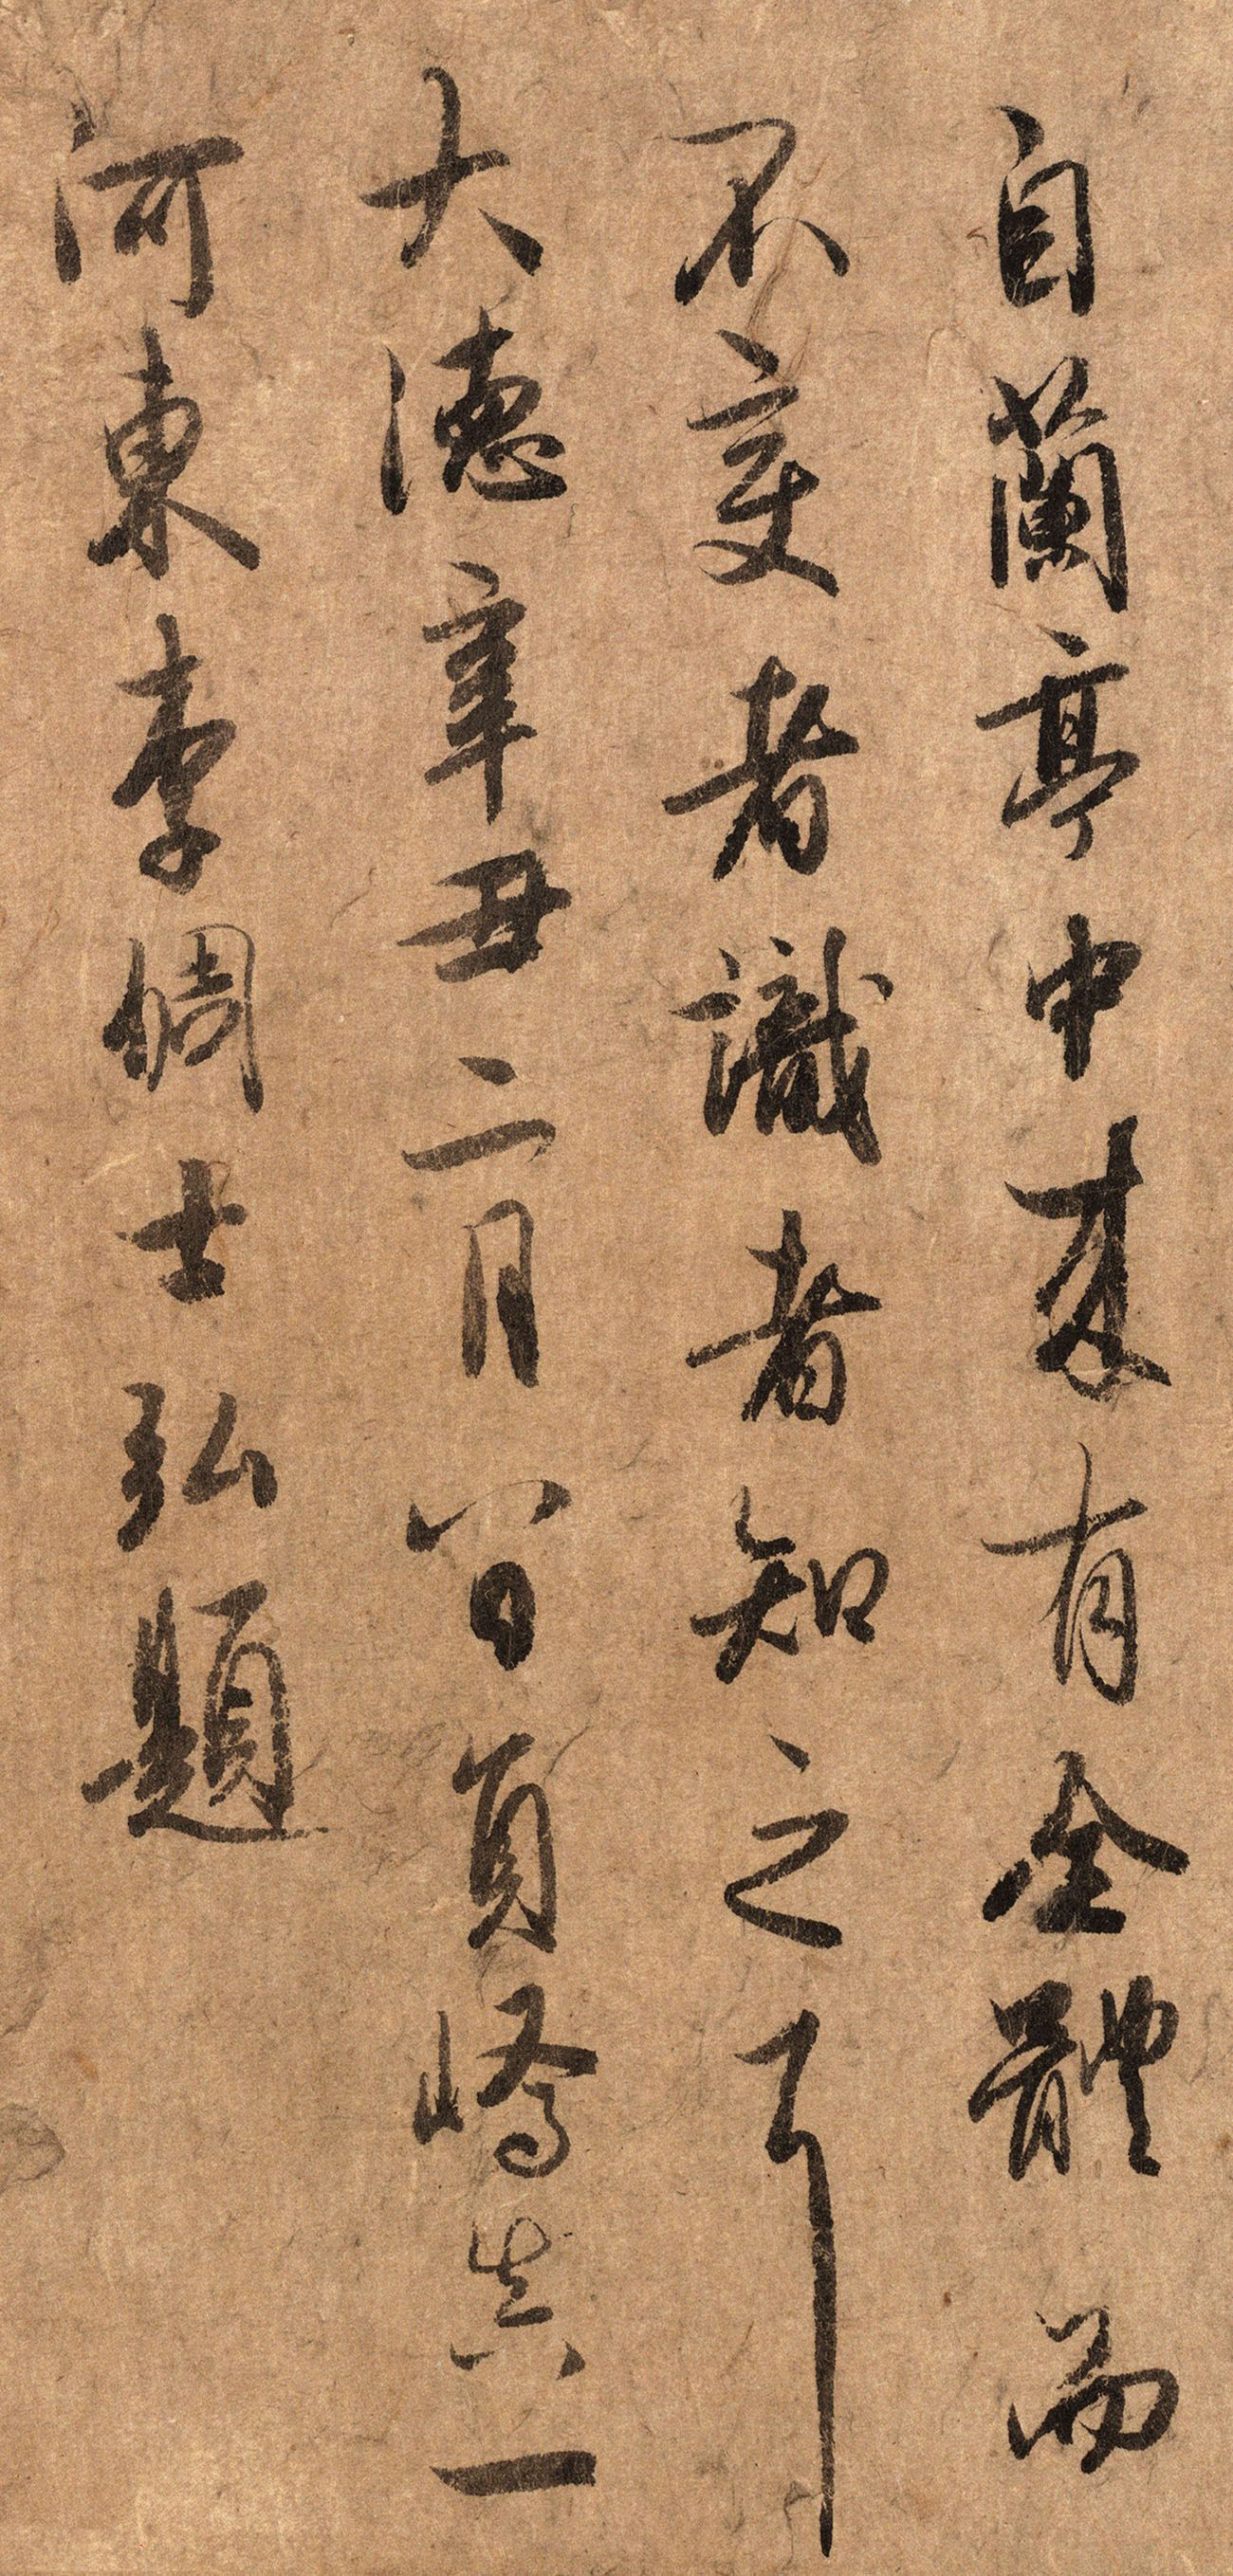 自蘭亭中来有全體而
不变者識者知之耳
大德辛丑二月八日員嶠真一
河東李倜士弘題